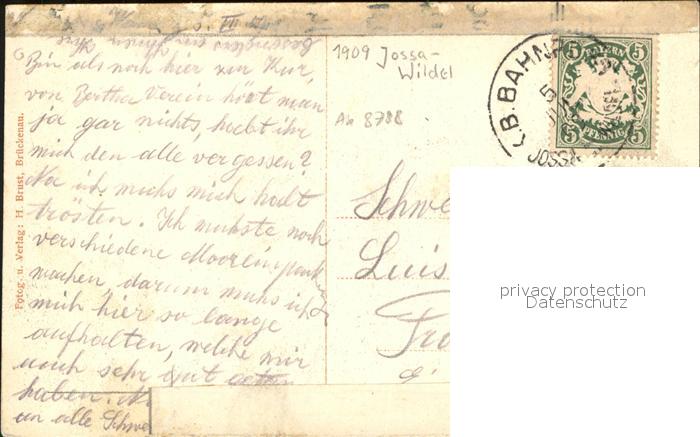 Bin als noch hier zur Kur,
von Bertha Verein hört man
ja gar nichts, habt ihr
mich den alle vergessen?
Na ich muhs mich halt
trösten. Ich muhste noch
verschiedene
machen, darum muhs ich
mich hier so lange
aufhalten, welche mir
auch sehr gut
haben.
an alle Schwe
Fotog. u. Verlag: H. Brust, Brückenau.
1909 Jossa-
Wildel
8788
K.B.BAHN
JOSSA
5 BAYERN 5
5 PFENNIG 5
Schwe
Luis
privacy protection
Datenschutz